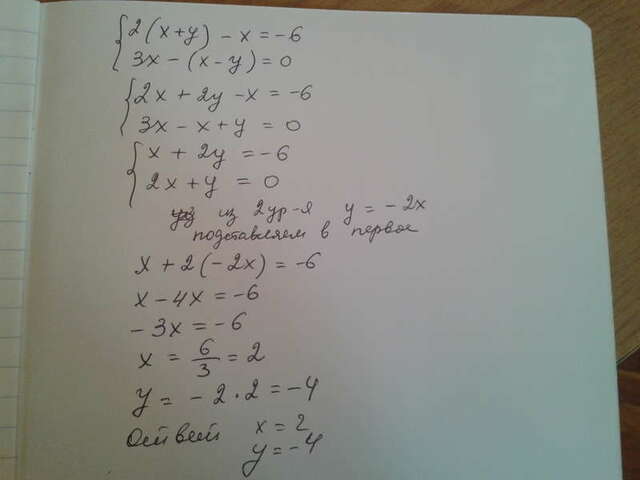 2(x+y) - x = -6
3x - (x - y) = 0
2x + 2y - x = -6
3x - x + y = 0
x + 2y = -6
2x + y = 0
из 2 ур-я y = -2x
подставляем в первое
x + 2(-2x) = -6
x - 4x = -6
-3x = -6
x = 6/3 = 2
y = -2 · 2 = -4
Ответ x = 2
y = -4